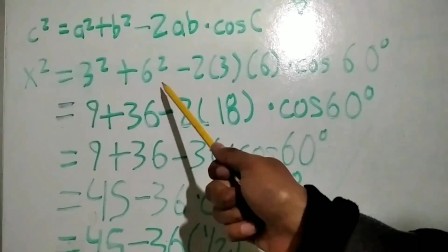 c² = a² + b² - 2ab · cos C
x² = 3² + 6² - 2(3)(6) · cos 60°
= 9 + 36 - 2(18) · cos 60°
= 9 + 36 - 60°
= 45 - 36
= 45 - 36 (½)